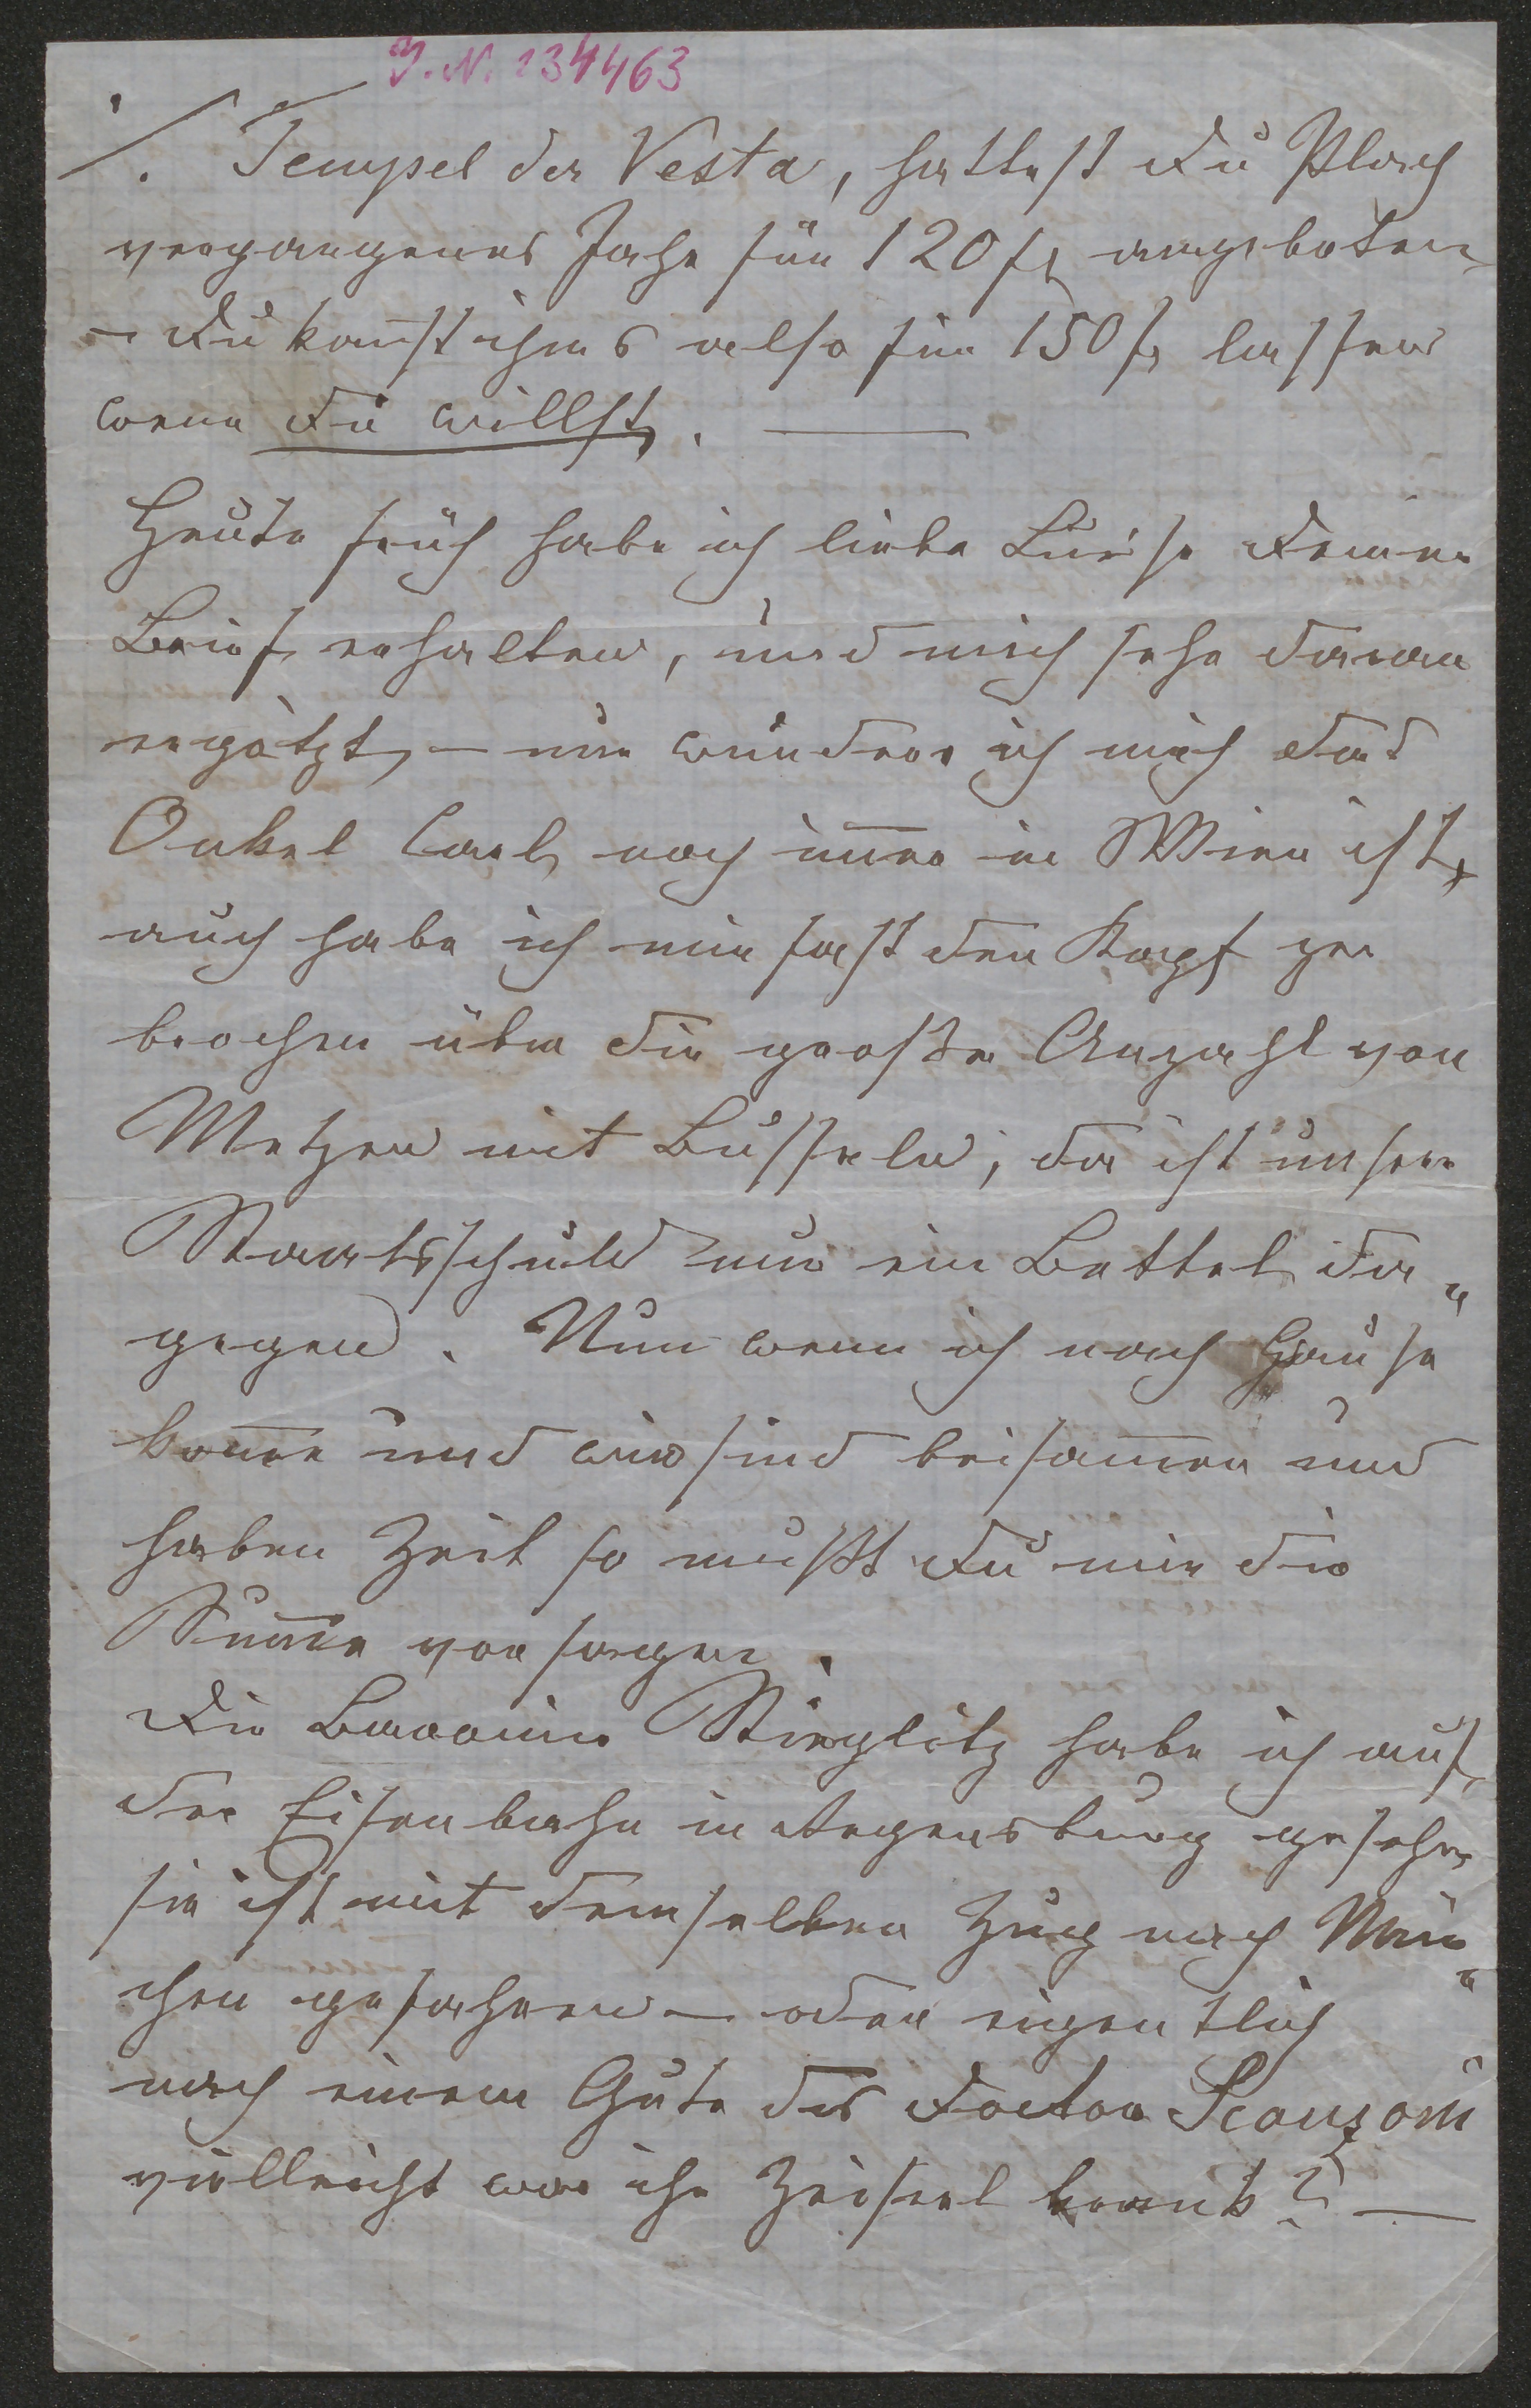 I. N. 134463
./. Tempel der Vesta, hattest Du Plach
vergangenes Jahr für 120 fl angeboten
– Du kan̄st ihm's also für 150 fl lassen
wenn Du willst. —
Heute früh habe ich liebe Luise Deinen
Brief erhalten, und mich sehr daran
ergötzt, – nur wundere ich mich daß
Onkel Carl noch im̄er in Wien ist,
auch habe ich mir fast den Kopf zer
brochen über die große Anzahl von
Metzen mit Busseln, da ist unsere
Staatsschuld nur ein Bettel da„
gegen. Nun wenn ich nach Hause
kom̄e und wir sind beisam̄en und
haben Zeit so mußt Du mir die
Sum̄e vorsagen.
Die Baronin Stieglitz habe ich auf
der Eisenbahn in Regensburg gesehen
sie ist mit demselben Zug nach Mün„
chen gefahren – oder eigentlich
nach einem Gute des Doctor Scanzoni
vielleicht war ihr Zeisel krank? —